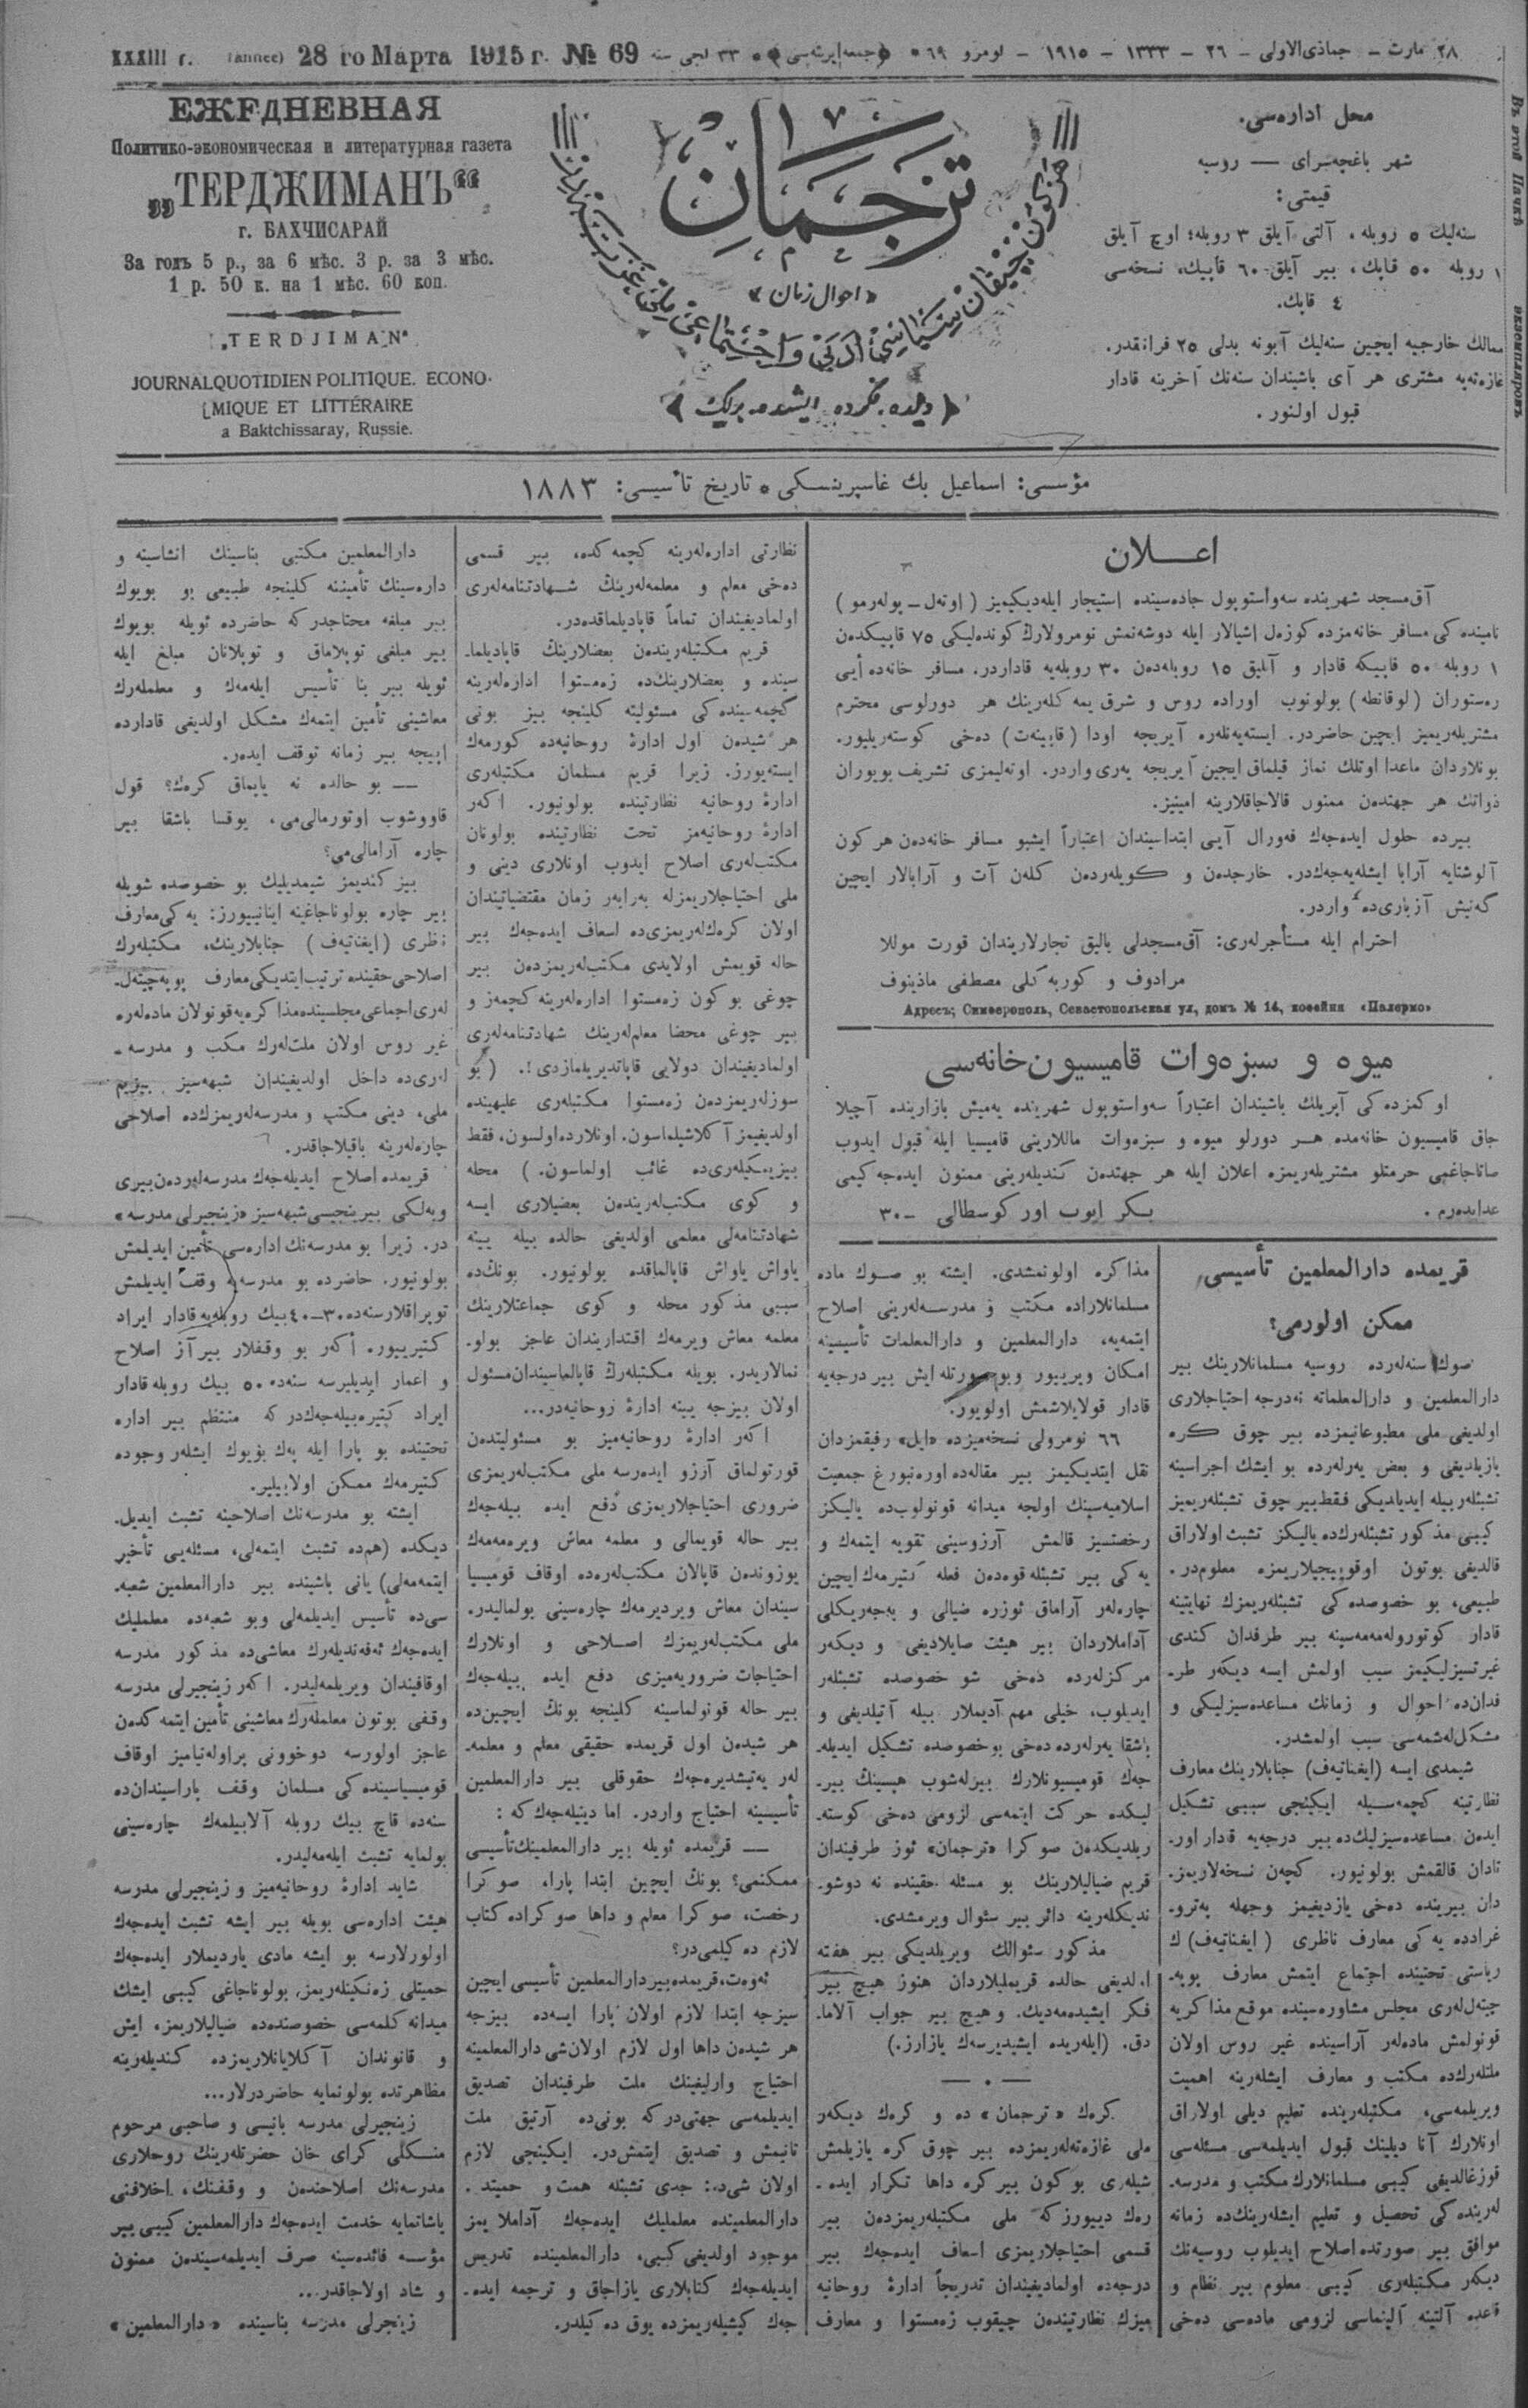 XXXIII г. (année) 28 го Марта 1915 г. № 69
٢٨ مارت – جماذی‌الاولی – ٢٦ – ١٣٣٣ – ١٩١٥ – نومرو ٦٩ ﴿جمعه‌ایرته‌سی﴾ ٣٣ نجی سنه
ЕЖЕДНЕВНАЯ
Политико-экономическая и литературная газета
„ТЕРДЖИМАНЪ“
г. БАХЧИСАРАЙ
За годъ 5 р., за 6 мѣс. 3 р. за 3 мѣс.
1 р. 50 к. на 1 мѣс. 60 коп.
„TERDJIMAN“
JOURNAL QUOTIDIEN POLITIQUE. ECONO-
MIQUE ET LITTÉRAIRE
a Baktchissaray, Russie.
ترجمان
«احوال زمان»
هر کون چیقان سیاسی، ادبی و اجتماعی
﴿دیلده، فکرده، ایشده بریك﴾
محل اداره‌سی.
شهر باغچه‌سرای — روسیه
قیمتی:
سنه‌لیك ٥ روبله، آلتی آیلق ٣ روبله؛ اوچ آیلق
١ روبله ٥٠ قاپك، بیر آیلق ٦٠ قاپیك، نسخه‌سی
٤ قاپك.
ممالك خارجیه ایچین سنه‌لیك آبونه بدلی ٢٥ فرانقدر.
غازه‌ته‌یه مشتری هر آی باشیندان سنه‌نك آخرینه قادار
قبول اولنور.
Въ этой Пачкѣ экземпляровъ
مؤسسی: اسماعیل بك غاسپرینسکی ٭ تاریخ تأسیسی: ١٨٨٣
اعـــلان
آق‌مسجد شهرینده سه‌واستوپول جاده‌سینده استیجار ایله‌دیکیمیز (اوته‌ل – پوله‌رمو)
نامینده کی مسافر خانه‌مزده کوزه‌ل اشیالار ایله دوشه‌نمش نومرولارڭ کونده‌لیکی ٧٥ قاپیکدن
١ روبله ٥٠ قاپیکه قادار و آیلیق ١٥ روبله‌دن ٣٠ روبله‌یه قاداردر. مسافر خانه‌ده أیی
ره‌ستوران (لوقانطه) بولونوب اوراده روس و شرق یمه کله‌رینك هر دورلوسی محترم
مشتریله‌ریمیز ایچین حاضردر. ایسته‌یه‌نله‌ره آیریجه اودا (قابینه‌ت) ده‌خی کوسته‌ریلیور.
بونلاردان ماعدا اوتلك نماز قیلماق ایچین آیریجه یه‌ری واردر. اوته‌لیمزی تشریف بویوران
ذواتك هر جهتده‌ن ممنون قالاجاقلارینه امینیز.
بیرده حلول ایده‌جه‌ك فه‌ورال آیی ابتداسیندان اعتباراً ایشبو مسافر خانه‌ده‌ن هر کون
آلوشتایه آرابا ایشله‌یه‌جه‌كدر. خارجده‌ن و کویله‌رده‌ن کله‌ن آت و آرابالار ایچین
گه‌نیش آزباری‌ده واردر.
احترام ایله مستأجرله‌ری: آق‌مسجدلی بالیق تجارلاریندان قورت موللا
مرادوف و کوربه کلی مصطفی ماذینوف
Адресъ: Симферополь, Севастопольская ул, домъ № 14, кофейня «Палермо»
میوه و سبزه‌وات قامیسیون‌خانه‌سی
اوکمزده کی آپریلك باشیندان اعتباراً سه‌واستوپول شهرینده یه‌میش بازارینده آچیلا
جاق قامیسیون خانه‌مده هـر دورلو میوه و سبزه‌وات ماللارینی قامیسیا ایله قبول ایدوب
صاتاجاغمی حرمتلو مشتریله‌ریمزه اعلان ایله هر جهتده‌ن کندیله‌رینی ممنون ایده‌جه کیمی
عدایده‌رم.
بـکر ایوب اور کوسطالی –٣٠
قریمده دارالمعلمین تأسیسی
ممکن اولورمی؟
صوك سنه‌له‌رده روسیه مسلمانلارینك بیر
دارالمعلمین و دارالمعلماته نه‌درجه احتیاجلاری
اولدیغی ملی مطبوعاتیمزده بیر چوق کـره
یازیلدیغی و بعض یه‌رله‌رده بو ایشك اجراسینه
تشبثله‌ربیله ایدیلدیکی فقط بیر چوق تشبثله‌ریمیز
کیبی مذکور تشبثله‌رك‌ده یالیکز تشبث اولاراق
قالدیغی بوتون اوقوییجیلاریمزه معلوم‌در.
طبیعی، بو خصوصده کی تشبثله‌ریمزك نهایتینه
قادار کوتوروله‌مه‌مه‌سینه بیر طرفدان کندی
غیرتسیزلیکیمز سبب اولمش ایسه دیکه‌ر طر-
فدان‌ده احوال و زمانك مساعده‌سیزلیکی و
مشکل‌له‌شمه‌سی سبب اولمشدر.
شیمدی ایسه (ایغناتیه‌ف) جنابلارینك معارف
نظارتینه کچمه‌سـیله ایکینجی سببی تشکیل
ایده‌ن مساعده‌سیزلیك‌ده بیر درجه‌یه قادار اور-
تادان قالقمش بولونیور. کچه‌ن نسخه‌لاریمز-
دان بیرینده ده‌خی یازدیغیمز وجهله په‌ترو-
غرادده یه کی معارف ناظری (ایغناتیه‌ف) ك
ریاستی تحتینده اجتماع ایتمش معارف پوپه-
چیته‌ل‌له‌ری مجلس مشاوره‌سینده موقع مذاکریه
قونولمش ماده‌له‌ر آراسینده غیر روس اولان
ملتله‌رك‌ده مکتب و معارف ایشله‌رینه اهمیت
ویریلمه‌سی، مکتبله‌رینده تعلیم دیلی اولاراق
اونلارك آنا دیلینك قبول ایدیلمه‌سی مسئله‌سی
قوزغالدیغی کیبی مسلمانلارك مکتب و مدرسه-
له‌رینده کی تحصیل و تعلیم ایشله‌رینك‌ده زمانه
موافق بیر صورتده اصلاح ایدیلوب روسیه‌نك
دیکه‌ر مکتبله‌ری کیبی معلوم بیر نظام و
قاعده آلتینه آلینماسی لزومی ماده‌سی ده‌خی
مذاکره اولونمشدی. ایشته بو صـوك ماده
مسلمانلاراده مکتب و مدرسـه‌له‌رینی اصلاح
ایتمه‌یه، دارالمعلمین و دارالمعلمات تأسیسینه
امکان ویریبور وبو صورتله ایش بیر درجه‌یه
قادار قولایلاشمش اولویور.
٦٦ نومرولی نسخه‌میزده «ایل» رفیقمزدان
نقل ایتدیکیمز بیر مقاله‌ده اوره‌نبورغ جمعیت
اسلامیه‌سینك اولجه میدانه قونولوب‌ده یالیکز
رخصتسیز قالمش آرزوسینی تقویه ایتمه‌ك و
یه کی بیر تشبثله قوه‌دن فعله کتیرمه‌ك ایچین
چاره‌لر آراماق ئوزره ضیالی و به‌جه‌ریکلی
آداملاردان بیر هیئت صایلادیغی و دیکه‌ر
مرکزله‌رده ده‌خی شو خصوصده تشبثله‌ر
ایدیلوب، خیلی مهم آدیملار بیله آتیلدیغی و
باشقا یه‌رله‌رده ده‌خی بو خصوصده تشکیل ایدیله-
جه‌ك قومیسیونلارك بیرله‌شوب هپسینك بیر-
لیکده حرکت ایتمه‌سی لزومی ده‌خی کوسته-
ریلدیکده‌ن صوکرا «ترجمان» ئوز طرفیندان
قریم ضیالیلارینك بو مسئله حقینده نه دوشو-
ندیکله‌رینه دائر بیر سئوال ویرمشدی.
مذکور سئوالك ویریلدیکی بیر هفته
اولدیغی حالده قریملیلاردان هنوز هیچ بیر
فکر ایشیده‌مه‌دیك. و هیچ بیر جواب آلاما-
دق. (ایله‌ریده ایشیدیرسه‌ك یازارز.)
کره‌ك «ترجمان» ده و کره‌ك دیکه‌ر
ملی غازه‌ته‌له‌ریمزده بیر چوق کره یازیلمش
شیله‌ری بو کون بیر کره داها تکرار ایده-
ره‌ك دییورز که ملی مکتبله‌ریمزده‌ن بیر
قسمی احتیاجلاریمزی اسعاف ایده‌جه‌ك بیر
درجه‌ده اولمادیغیندان تدریجاً ادارۀ روحانیه
میزك نظارتیندن چیقوب زه‌مستوا و معارف
نظارتی اداره‌له‌رینه کچمه کده، بیر قسمی
ده‌خی معلم و معلمه‌له‌رینڭ شـهادتنامه‌له‌ری
اولمادیغیندان تماماً قاپادیلماقده‌در.
قریم مکتبله‌رینده‌ن بعضلارینڭ قاپادیلما-
سینده و بعضلارینك‌ده زه‌مستوا اداره‌له‌رینه
گچمه‌سینده کی مسئولیته کلینجه بیز بونی
هر شیده‌ن اول ادارۀ روحانیه‌ده کورمه‌ك
ایسته‌یورز. زیرا قریم مسلمان مکتبله‌ری
ادارۀ روحانیه نظارتینده بولونیور. اکه‌ر
ادارۀ روحانیه‌مز تحت نظارتینده بولونان
مکتب‌له‌ری اصلاح ایدوب اونلاری دینی و
ملی احتیاجلاریمزله به‌رابه‌ر زمان مقتضیاتیندان
اولان کره‌ك‌له‌ریمزی‌ده اسعاف ایده‌جه‌ك بیر
حاله قویمش اولایدی مکتب‌له‌ریمزده‌ن بیر
چوغی بو کون زه‌مستوا اداره‌له‌رینه کچمه‌ز و
بیر چوغی محضا معلم‌له‌رینك شهادتنامه‌له‌ری
اولمادیغیندان دولایی قاپاتدیریلمازدی!. (بو
سوزله‌ریمزده‌ن زه‌مستوا مکتبله‌ری علیهینده
اولدیغیمز آکلاشیلماسون. اونلارده اولسون، فقط
بیزیمکیله‌ری‌ده غائب اولماسون.) محله
و کوی مکتب‌له‌رینده‌ن بعضیلاری ایسه
شهادتنامه‌لی معلمی اولدیغی حالده بیله یینه
یاواش یاواش قاپالماقده بولونیور. بونك‌ده
سببی مذکور محله و کوی جماعتلارینك
معلمه معاش ویرمه‌ك اقتداریندان عاجز بولو-
نمالاریدر. بویله مکتبله‌رڭ قاپالماسیندان مسئول
اولان بیزجه یینه ادارۀ روحانیه‌در...
اکه‌ر ادارۀ روحانیه‌میز بو مسئولیتده‌ن
قورتولماق آرزو ایده‌رسه ملی مکتب‌له‌ریمزی
ضروری احتیاجلاریمزی دفع ایده بیله‌جه‌ك
بیر حاله قویمالی و معلمه معاش ویره‌مه‌مه‌ك
یوزونده‌ن قاپالان مکتب‌له‌رده اوقاف قومیسیا
سیندان معاش ویردیرمه‌ك چاره‌سینی بولمالیدر.
ملی مکتب‌له‌ریمزك اصـلاحی و اونلارك
احتیاجات ضروریه‌میزی دفع ایده بیله‌جه‌ك
بیر حاله قونولماسینه کلینجه بونڭ ایچین‌ده
هر شیده‌ن اول قریمده حقیقی معلم و معلمه-
له‌ر یه‌تیشدیره‌جه‌ك حقوقلی بیر دارالمعلمین
تأسیسینه احتیاج واردر. اما دینیله‌جه‌ك که:
— قریمده ئویله بیر دارالمعلمینك تأسیسی
ممکنمی؟ بونڭ ایچین ابتدا پارا، صوکرا
رخصت، صوکرا معلم و داها صوکراده کتاب
لازم ده کیلمی‌در؟
ئه‌وه‌ت، قریمده بیر دارالمعلمین تأسیسی ایچین
سیزجه ابتدا لازم اولان پارا ایسه‌ده بیزجه
هر شیده‌ن داها اول لازم اولان‌شی دارالمعلمینه
احتیاج وارلیغینك ملت طرفیندان تصدیق
ایدیلمه‌سی جهتی‌در که بونی‌ده آرتیق ملت
تانیمش و تصدیق ایتمش‌در. ایکینجی لازم
اولان شی‌ده: جدی تشبثله همت و حمیتد.
دارالمعلمینده معلملیك ایده‌جه‌ك آداملا یمز
موجود اولدیغی کیبی، دارالمعلمینده تدریس
ایدیله‌جه‌ك کتابلاری یازاجاق و ترجمه ایده-
جه‌ك کیشیله‌ریمزده یوق ده کیلدر.
دارالمعلمین مکتبی بناسینك انشاسینه و
داره‌سینك تأمیننه کلینجه طبیعی بو بویوك
بیر مبلغه محتاجدر که حاضرده ئویله بویوك
بیر مبلغی توپلاماق و توپلانان مبلغ ایله
ئویله بیر بنا تأسیس ایله‌مه‌ك و معلمله‌رك
معاشینی تأمین ایتمه‌ك مشکل اولدیغی قادارده
اپیجه بیر زمانه توقف ایده‌ر.
— بو حالده نه یاپماق کره‌ك؟ قول
قاووشوب اوتورمالی‌می، یوقسا باشقا بیر
چاره آرامالی‌می؟
بیز کندیمز شیمدیلیك بو خصوصده شویله
بیر چاره بولوناجاغینه اینانییورز: یه کی معارف
نظری (ایغناتیه‌ف) جنابلارینك، مکتبله‌رك
اصلاحی حقینده ترتیب ایتدیکی معارف پوپه‌چیته‌ل-
له‌ری اجماعی مجلسینده مذاکره‌یه قونولان ماده‌له‌ره
غیر روس اولان ملت‌له‌رك مکتب و مدرسه-
له‌ری‌ده داخل اولدیغیندان شبهه‌سیز بیزیم
ملی، دینی مکتب و مدرسه‌له‌ریمزك‌ده اصلاحی
چاره‌له‌رینه باقیلاجاقدر.
قریمده اصلاح ایدیله‌جه‌ك مدرسه‌له‌رده‌ن بیری
وبه‌لکی بیرینجیسی شبهه‌سیز «زینجیرلی مدرسه»
در. زیرا بو مدرسه‌نك اداره‌سی تأمین ایدیلمش
بولونیور. حاضرده بو مدرسه‌یه وقف ایدیلمش
توپراقلار سنه‌ده ٣٠–٤٠ بیك روبله‌یه قادار ایراد
کتیریبور. أکه‌ر بو وقفلار بیر آز اصلاح
و اعمار ایدیلیرسه سنه‌ده ٥٠ بیك روبله قادار
ایراد کتیره‌بیله‌جه‌كدر که منتظم بیر اداره
تحتینده بو پارا ایله په‌ك بویوك ایشله‌ر وجوده
کتیرمه‌ك ممکن اولابیلیر.
ایشته بو مدرسه‌نك اصلاحینه تشبث ایدیل-
دیکده (هم‌ده تشبث ایتمه‌لی، مسئله‌یی تأخیر
ایتمه‌مه‌لی) یانی باشینده بیر دارالمعلمین شعبه-
سی‌ده تأسیس ایدیلمه‌لی وبو شعبه‌ده معلملیك
ایده‌جه‌ك ئه‌فه‌ندیله‌رك معاشی‌ده مذکور مدرسه
اوقافیندان ویریلمه‌لیدر. اکه‌ر زینجیرلی مدرسه
وقفی بوتون معلمله‌رك معاشینی تأمین ایتمه کده‌ن
عاجز اولورسه دوخوونی پراوله‌نیامیز اوقاف
قومیسیاسینده کی مسلمان وقف پاراسیندان‌ده
سنه‌ده قاچ بیك روبله آلابیلمه‌ك چاره‌سینی
بولمایه تشبث ایله‌مه‌لیدر.
شاید ادارۀ روحانیه‌میز و زینجیرلی مدرسه
هیئت اداره‌سی بویله بیر ایشه تشبث ایده‌جه‌ك
اولورلارسه بو ایشه مادی یاردیملار ایده‌جه‌ك
حمیتلی زه‌نکینله‌ریمز، بولوناجاغی کیبی ایشك
میدانه کلمه‌سی خصوصنده‌ده ضیالیلاریمز، ایش
و قانوندان آکلایانلاریمزده کندیله‌رینه
مظاهرتده بولونمایه حاضردرلار...
زینجیرلی مدرسه بانیسی و صاحبی مرحوم
منـکلی کرای خان حضرتله‌رینك روحلاری
مدرسه‌نك اصلاحندن و وقفنك، اخلاقنی
یاشاتمایه خدمت ایده‌جه‌ك دارالمعلمین کیبی بیر
مؤسسه فائده‌سینه صرف ایدیلمه‌سیندن ممنون
و شاد اولاجاقدر...
زینجرلی مدرسه بناسینده «دارالمعلمین»